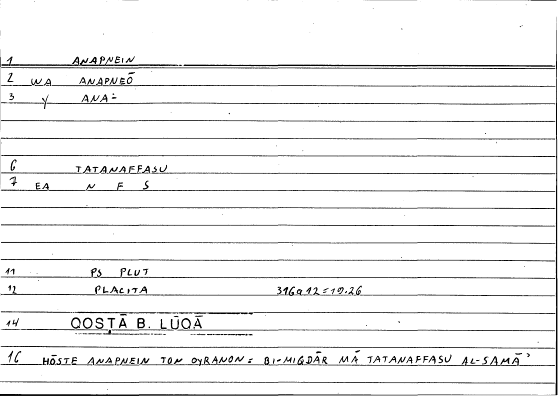 1 ANAPNEIN
2 WA ANAPNEŌ
3 y ANA-
6 TATANAFFASU
7 EA N F S
11 PS PLUT
12 PLACITA 316a12=19.26
14 QOSṬĀ B. LŪQĀ
16 HŌSTE ANAPNEIN TON OYRANON = BI-MIQDĀR MĀ TATANAFFASU AL-SAMĀʾ